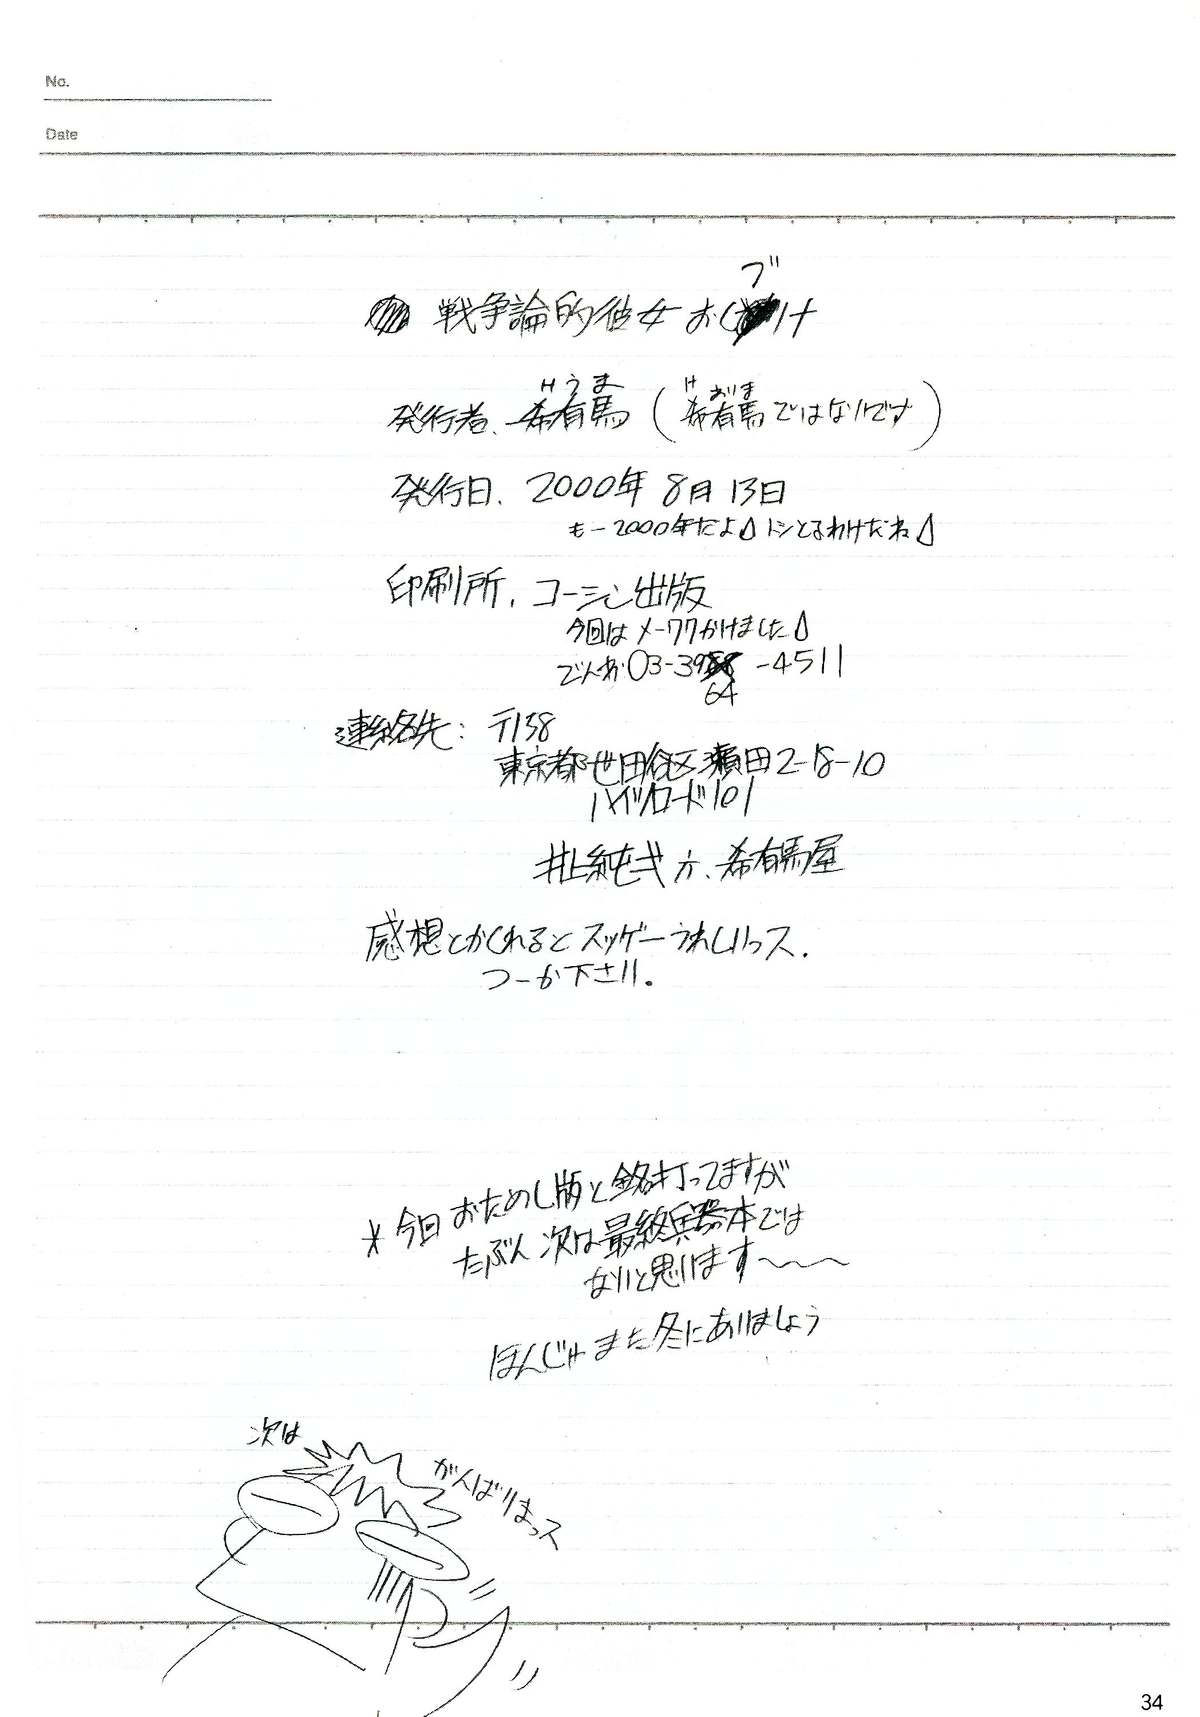 No.
Date
戦争論的彼女 おしげ
ブ
発行者、希有馬(希有馬ではないです)
けうま
け ありま
発行日、2000年 8月 13日
もー2000年だよ トシとるわけだね
印刷所、コーシン出版
今回はメーワクかけました
でんわ 03-3964-4511
連絡先: 〒158
東京都世田谷区瀬田2-18-10
ハイツロード101
井上純弌 方、希有馬屋
感想とかくれるとスッゲーうれしいっス.
つーか下さい。
*今回おためし版と銘打ってますが
たぶん次は最終兵器本では
ないと思います〜〜〜
ほんじゃまた冬にあいましょう
次は
がんばりまっス
34